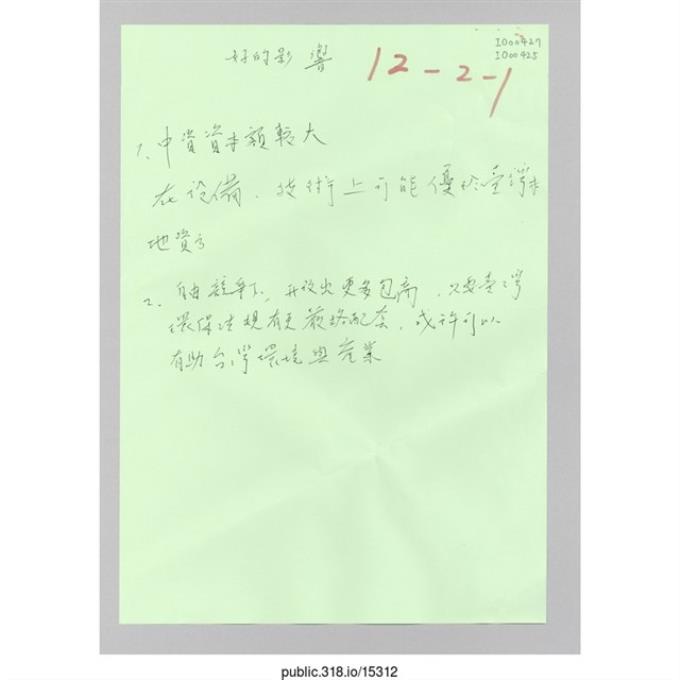 I000427
I000425
好的影響
12-2-1
1、中資資本額較大
在設備、技術上可能優於臺灣本
地資方
2、自由競爭下,開放出更多包商,只要臺灣
環保法規有更嚴格配套,或許可以
有助台灣環境與產業
public.318.io/15312